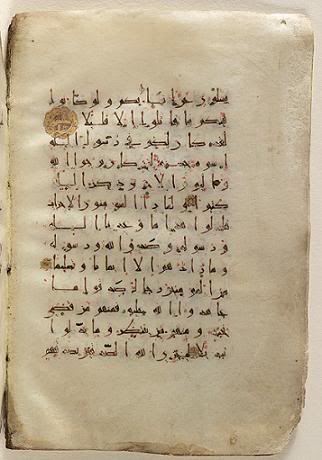 يسلون عن انبائكم ولو كانوا
فيكم ما قتلوا الا قليلا
لقد كان لكم في رسول الله
اسوة حسنة لمن كان يرجوا الله
واليوم الاخر وذكر الله
كثيرا ولما را المومنون الاحزاب
قالوا هذا ما وعدنا الله
ورسوله وصدق الله ورسوله
وما زادهم الا ايمانا وتسليما
من المومنين رجال صدقوا ما
عهدوا الله عليه فمنهم من قضى
نحبه ومنهم من ينتظر وما بدلوا
تبديلا ليجزي الله الصدقين بصدقهم